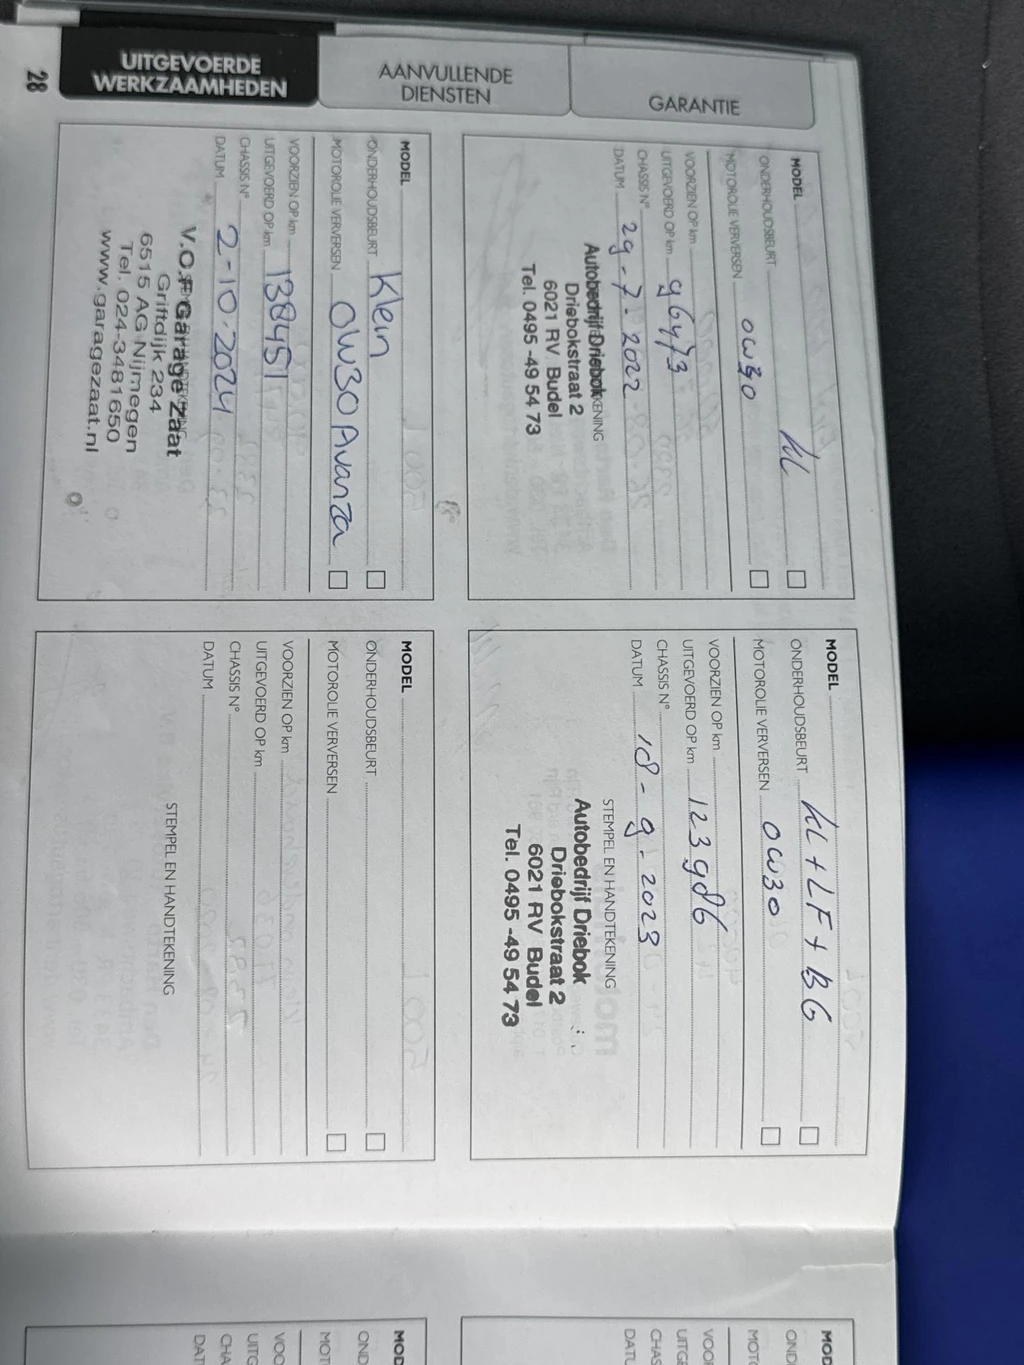 GARANTIE
AANVULLENDE
DIENSTEN
UITGEVOERDE
WERKZAAMHEDEN
28
MODEL
ONDERHOUDSBEURT KL
MOTOROLIE VERVERSEN 0W30
VOORZIEN OP km
UITGEVOERD OP km 96473
CHASSIS N°
DATUM 29-7-2022
Autobedrijf Driebok
Driebokstraat 2
6021 RV Budel
Tel. 0495 -49 54 73
MODEL
ONDERHOUDSBEURT KL + LF + BG
MOTOROLIE VERVERSEN 0W30
VOORZIEN OP km
UITGEVOERD OP km 123986
CHASSIS N°
DATUM 18-9-2023
STEMPEL EN HANDTEKENING
Autobedrijf Driebok
Driebokstraat 2
6021 RV Budel
Tel. 0495 -49 54 73
MODEL
ONDERHOUDSBEURT Klein
MOTOROLIE VERVERSEN 0W30 Avanza
VOORZIEN OP km
UITGEVOERD OP km 138451
CHASSIS N°
DATUM 2-10-2024
V.O.F Garage Zaat
Griftdijk 234
6515 AG Nijmegen
Tel. 024-3481650
www.garagezaat.nl
MODEL
ONDERHOUDSBEURT
MOTOROLIE VERVERSEN
VOORZIEN OP km
UITGEVOERD OP km
CHASSIS N°
DATUM
STEMPEL EN HANDTEKENING
MOD
OND
MOTO
VOOR
UITGE
CHAS
DATU
MOD
OND
MOT
VOO
UITG
CHA
DAT